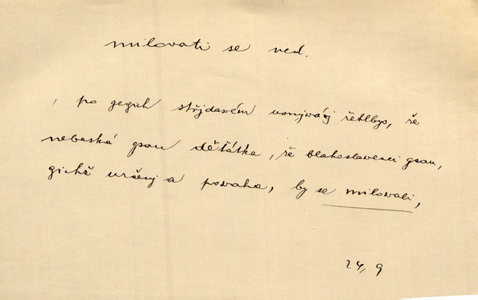 milovati se ned.
, po gegich střjdavém usnjvánj řekl bys, že
nebeská gsau děťátka, že blahoslavenci gsau,
gichž určenj a powaha, by se milovali,
24, 9